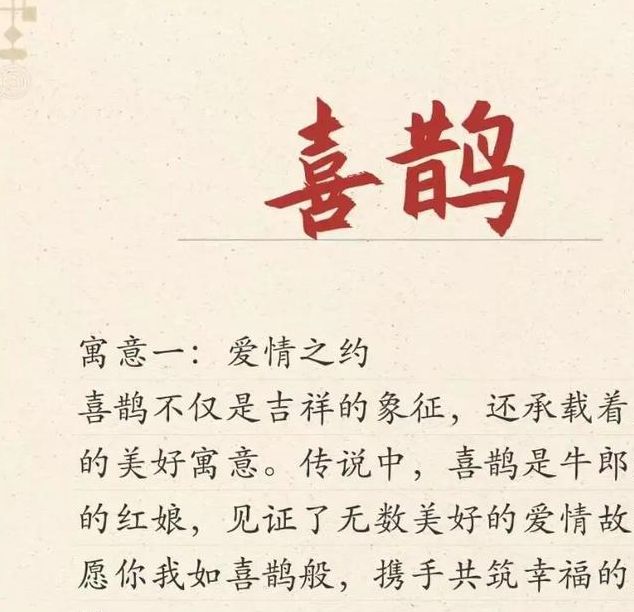 喜鹊
寓意一：爱情之约
喜鹊不仅是吉祥的象征，还承载着
的美好寓意。传说中，喜鹊是牛郎
的红娘，见证了无数美好的爱情故
愿你我如喜鹊般，携手共筑幸福的